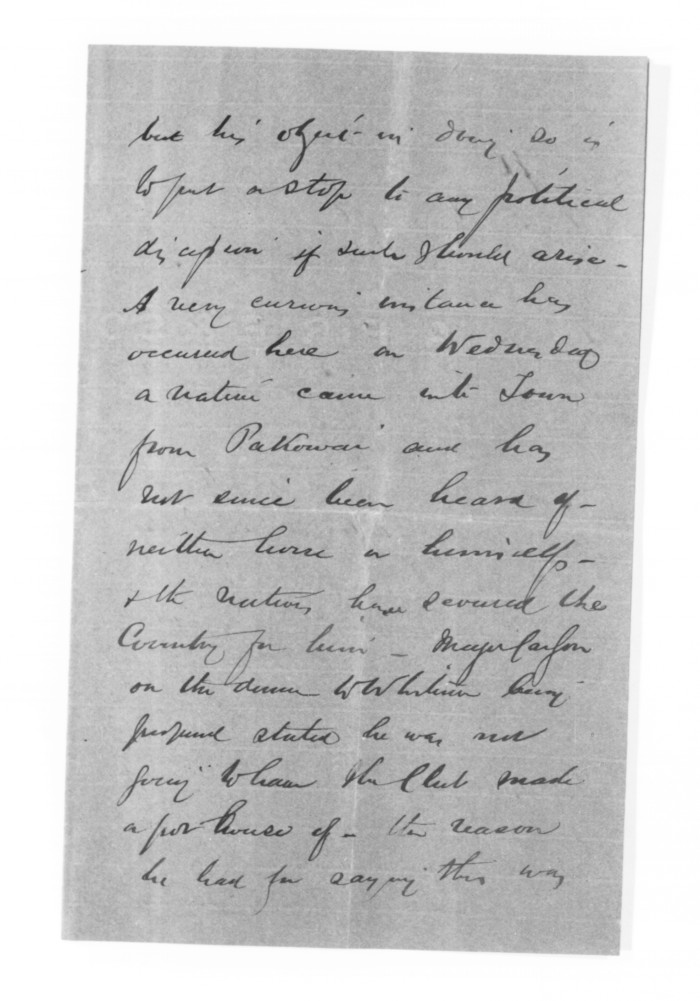 but his object in doing so is
to put a stop to any political
discussion if such should arise -
A very curious instance has
occured here on Wednesday
a native came into Town
from Pakowai and has
not since been heard of -
neither horse or himself -
& the natives have scoured the
Country for him - Major
on the dinner to Whitmore being
proposed stated he was not
going to have the Club made
a pot house of - the reason
he had for saying this was